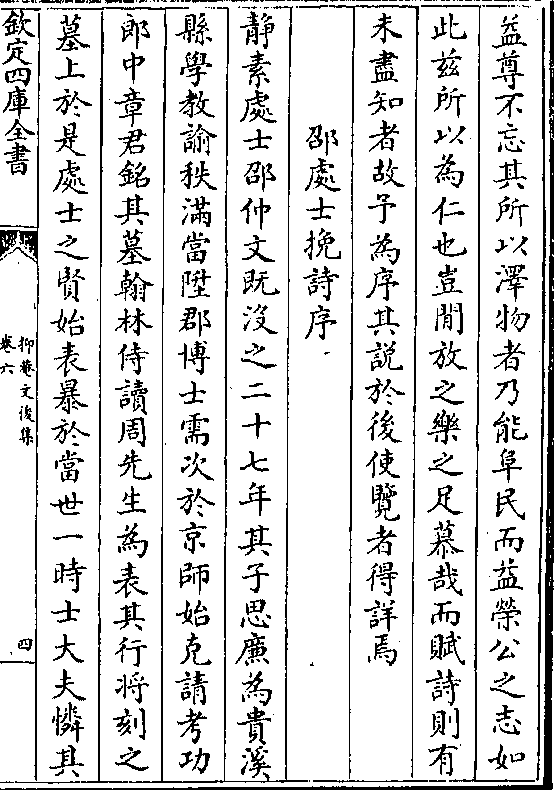 益尊不忘其所以澤物者乃能阜民而益榮公之志如
此兹所以為仁也豈閒放之樂之足慕哉而賦詩則有
未盡知者故予為序其説於後使覽者得詳焉
邵處士挽詩序
靜素處士邵仲文既沒之二十七年其子思廉為貴溪
縣學教諭秩滿當陞郡博士需次於京師始克請考功
郎中章君銘其墓翰林侍讀周先生為表其行将刻之
墓上於是處士之賢始表暴於當世一時士大夫憐其
欽定四庫全書
抑菴文後集
卷六
四